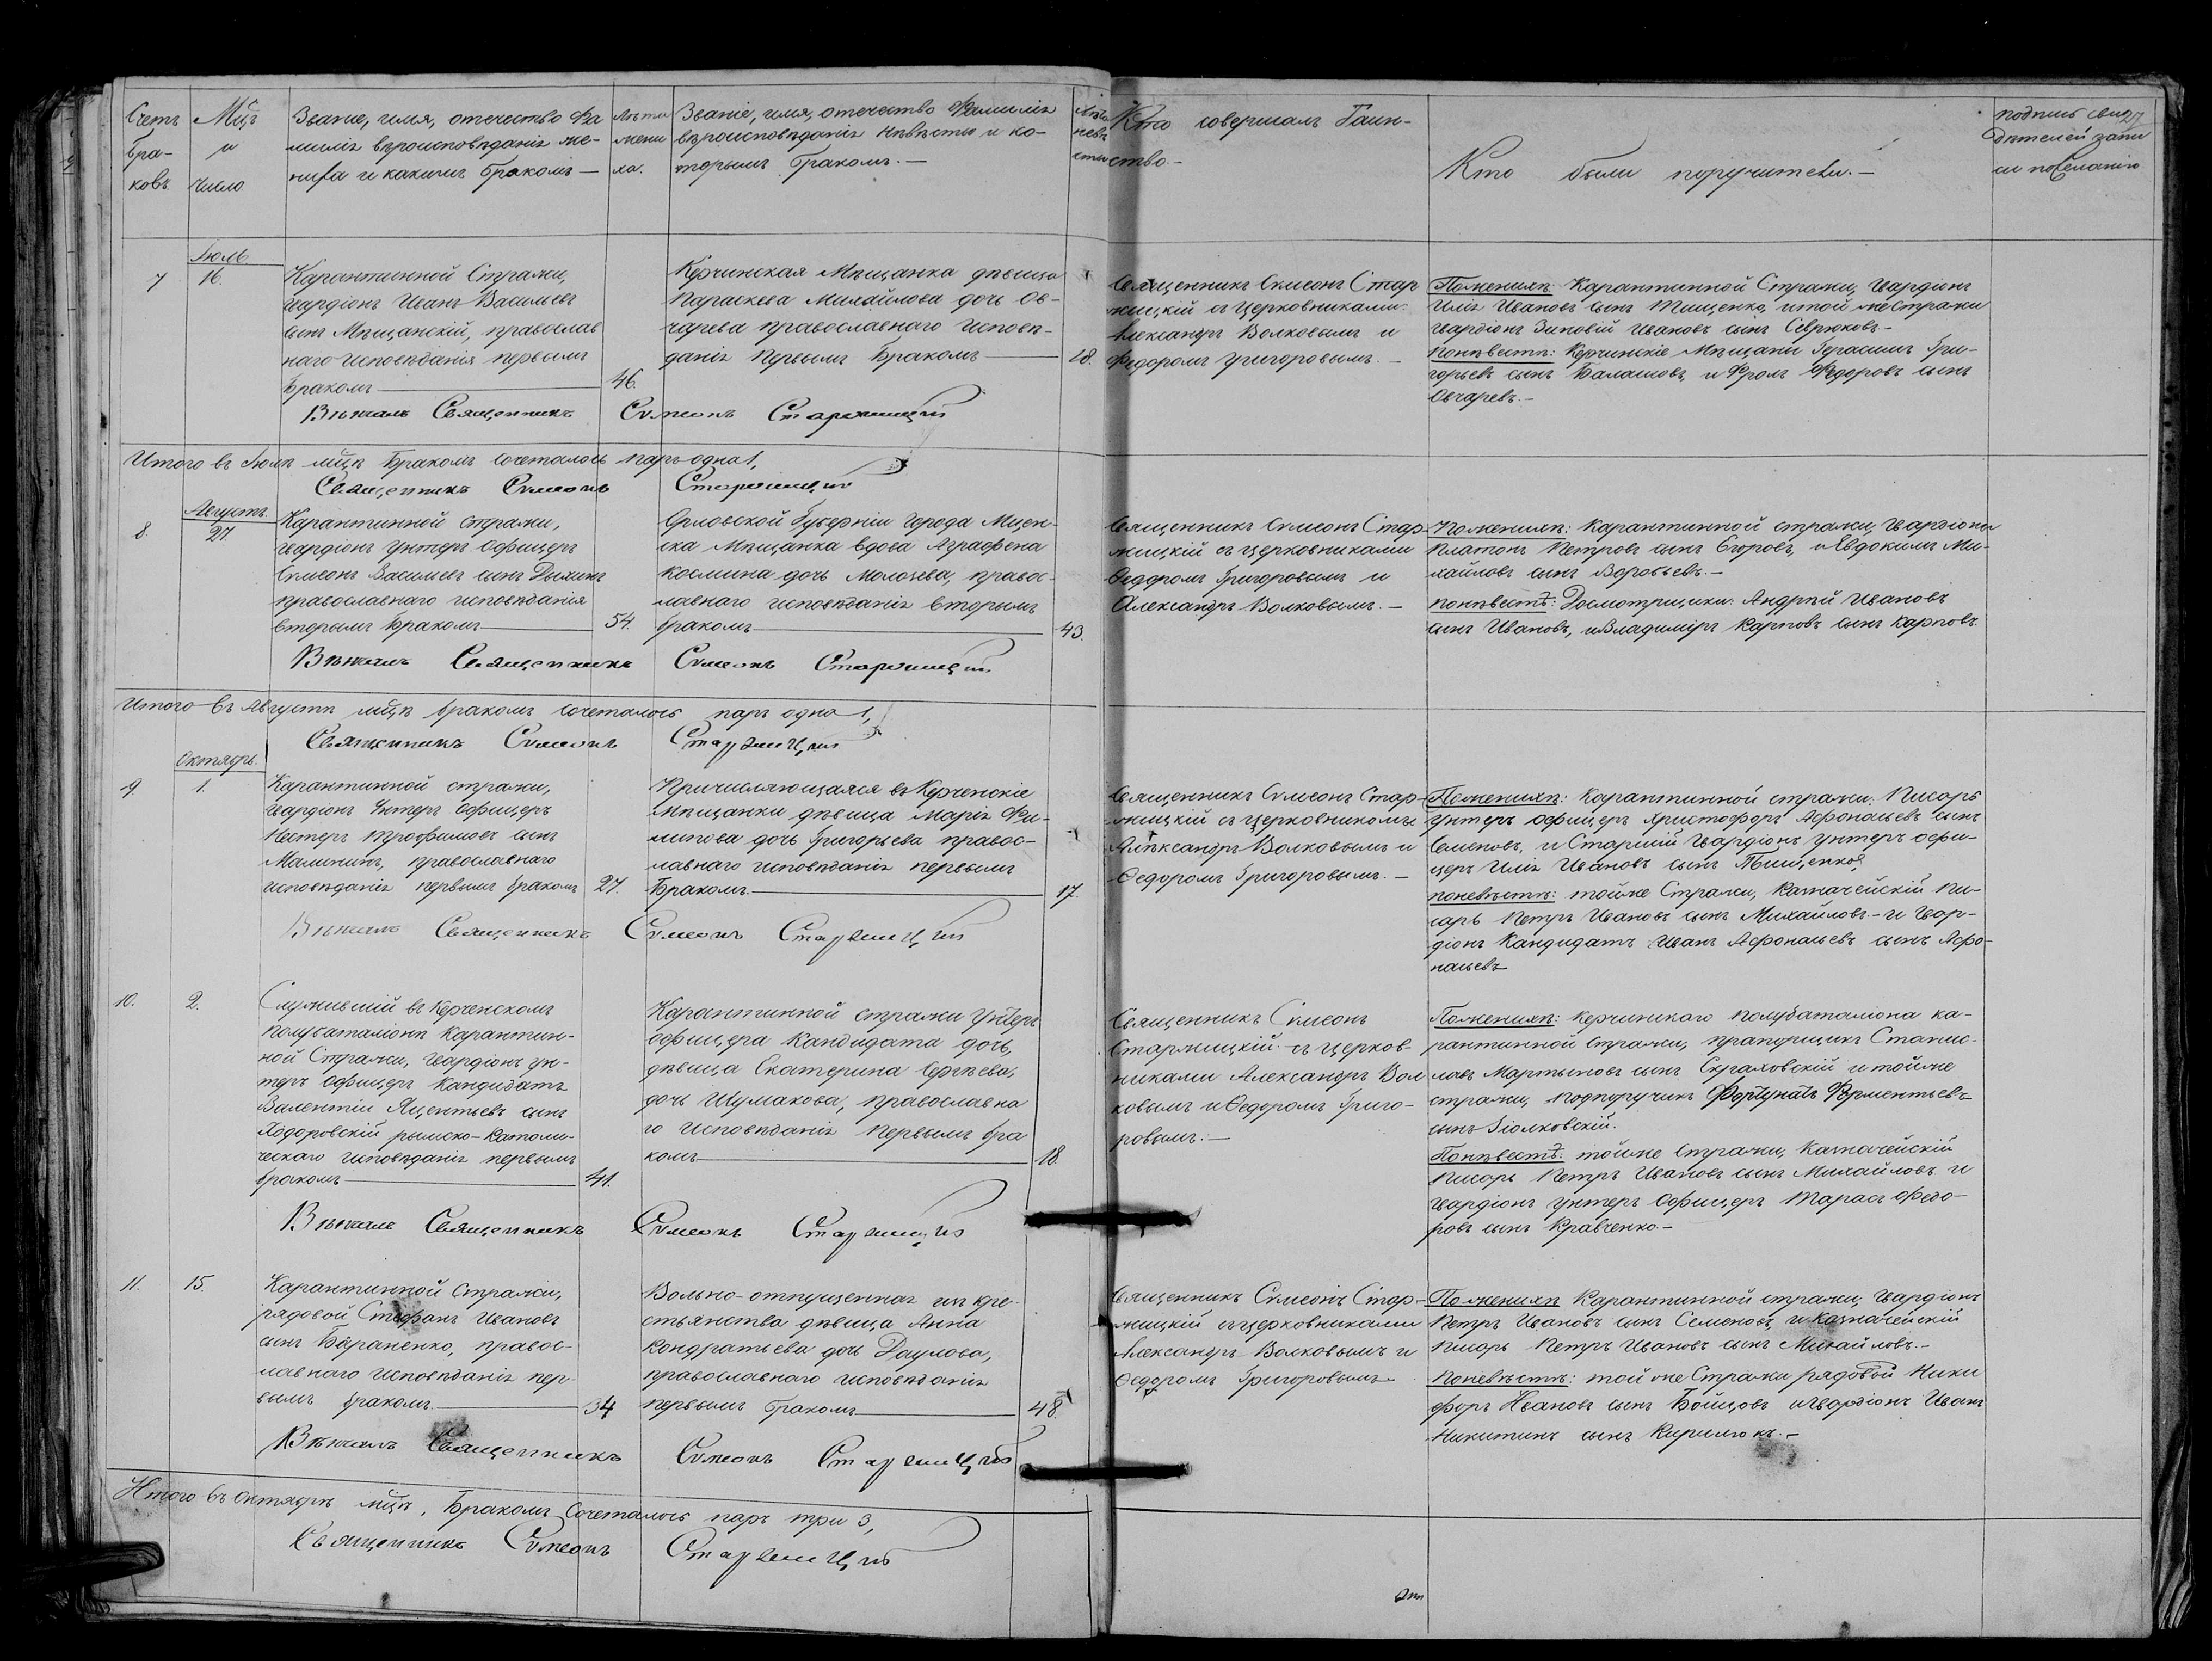 Счетъ
бра-
ковъ
Мцъ
и
число
Званіе, имя, отечество Фа
миліа вѣроисповѣданіа же-
ниха и какимъ бракомъ —
Лѣта
жени
ха.
Званіе, имя, отечество Фамиліа
вѣроисповѣданіа невѣсты и ко-
торымъ бракомъ. —
Лѣта
невѣ
сты
Кто совершалъ Таин-
ство. —
Кто были поручители. —
подпись свид
27
ѣтелей запи
си по желанію
7
Іюль
16.
Карантинной Стражи,
гвардіонъ Иванъ Васильевъ
сынъ Мѣщанскій, православ
наго исповѣданія первымъ
бракомъ —
46.
Керчинская Мѣщанка дѣвица
Параскева Михайлова дочь Ов-
чарева православнаго исповѣ-
даніа первымъ бракомъ —
18.
Священникъ Симеонъ Стар
жицкій съ церковниками:
Александръ Волковымъ и
Федоромъ Григоровымъ. —
Поженихѣ: Карантинной Стражи, Гвардіонъ
Иліа Ивановъ сынъ Тищенко, и той же Стражи
гвардіонъ Зиновій Ивановъ сынъ Севрюковъ. —
Поневѣстѣ: Керчинскіе Мѣщани Герасимъ Гри-
горьевъ сынъ Балашовъ, и Фролъ Федоровъ сынъ
Овчаревъ. —
Вѣнчалъ Священникъ Симеонъ Старжицкій
Итого въ Іюлѣ мцѣ бракомъ сочеталось паръ одна 1,
Священникъ Симеонъ Старжицкій
8.
Августъ.
27.
Карантинной стражи,
гвардіонъ унтеръ офицеръ
Симеонъ Васильевъ сынъ Дьихинъ
православнаго исповѣданія
вторымъ бракомъ —
54.
Орловской Губерніи города Мцен-
ска Мѣщанка вдова Аграфена
Космина дочь Молозева, правос-
лавнаго исповѣданіа вторымъ
бракомъ —
43.
Священникъ Симеонъ Стар-
жицкій съ церковниками
Ѳедоромъ Григоровымъ и
Александръ Волковымъ. —
Поженихѣ: карантинной стражи, гвардіоны
Платонъ Петровъ сынъ Егоровъ, и Евдокимъ Ми-
хайловъ сынъ Воробьевъ. —
поневѣстѣ: Досмотрщики: Андрей Ивановъ
сынъ Ивановъ, и Владиміръ Карповъ сынъ Карповъ.
Вѣнчалъ Священникъ Симеонъ Старжицкій
Итого въ Августѣ мцѣ бракомъ сочеталось паръ одна 1,
Священникъ Симеонъ Старжицкій
Октябрь.
9.
1.
Карантинной стражи,
гвардіонъ Унтеръ Офицеръ
Нестеръ Трофимовъ сынъ
Малининъ, православнаго
исповѣданіа первымъ бракомъ
27.
Причисляющаяся въ Керченскіе
мѣщанки дѣвица Маріа Фи-
липова дочь Григорьева правос-
лавнаго исповѣданіа первымъ
бракомъ. —
17.
Священникъ Симеонъ Стар-
жицкій съ церковникомъ
Александръ Волковымъ и
Ѳедоромъ Григоровымъ. —
Поженихѣ: Карантинной стражи. Писарь
Унтеръ офицеръ Христофоръ Афонасьевъ сынъ
Семеновъ, и Старшій Гвардіонъ унтеръ офи-
церъ Иліа Ивановъ сынъ Тищенко,
поневѣстѣ: тойже Стражи, казначейскій пи-
сарь Петръ Ивановъ сынъ Михайловъ. - и гвар-
діонъ Кандидатъ Иванъ Афонасьевъ сынъ Афо-
насьевъ
Вѣнчалъ Священникъ Симеонъ Старжицкій
10.
2.
Служившій въ Керченскомъ
полубаталіонѣ карантин-
ной Стражи, гвардіонъ ун-
теръ офицеръ кандидатъ
Валентіи Яцентьевъ сынъ
Ходоровскій рымско-католи-
ческаго исповѣданіа первымъ
бракомъ —
41.
Карантинной стражи унтеръ
офицера Кандидата дочь,
дѣвица Екатерина Сергѣева,
дочь Шумакова, православна
го исповѣданіа первымъ бра
комъ —
18.
Священникъ Симеонъ
Старжицкій съ церков-
никами Александръ Вол
ковымъ и Ѳедоромъ Григо-
ровымъ. —
Поженихѣ: керчинскаго полубаталіона ка-
рантинной стражи, прапорщикъ Станис-
лавъ Мартыновъ сынъ Скраховскій и тойже
стражи, подпоручикъ Фортунатъ Форментьевъ
сынъ Зіолковскій.
Поневѣстѣ: тойже Стражи, Казначейскій
писарь Петръ Ивановъ сынъ Михайловъ и
гвардіонъ унтеръ Офицеръ Тарасъ Федо-
ровъ сынъ Кравченко. —
Вѣнчалъ Священникъ Симеонъ Старжицкій
11.
15.
Карантинной Стражи,
рядовой Стефанъ Ивановъ
сынъ Бараненко, правос-
лавнаго исповѣданіа пер-
вымъ бракомъ. —
34
Вольно-отпущенная изъ кре-
стьянства дѣвица Анна
Кондратьева дочь Даулова,
православнаго исповѣданіа
первымъ бракомъ —
48.
Священникъ Симеонъ Стар-
жицкій съ церковниками
Александръ Волковымъ и
Ѳедоромъ Григоровымъ.
Поженихѣ Карантинной стражи, гвардіонъ
Петръ Ивановъ сынъ Семеновъ, и Казначейскій
писарь Петръ Ивановъ сынъ Михайловъ. —
Поневѣстѣ: той же Стражи рядовой Ники
форъ Ивановъ сынъ Бойцовъ и гвардіонъ Иванъ
Никитинъ сынъ Кирилюкъ. —
Вѣнчалъ Священникъ Симеонъ Старжицкій
Итого въ Октябрѣ мцѣ, Бракомъ сочеталось паръ три 3,
Священникъ Симеонъ Старжицкій